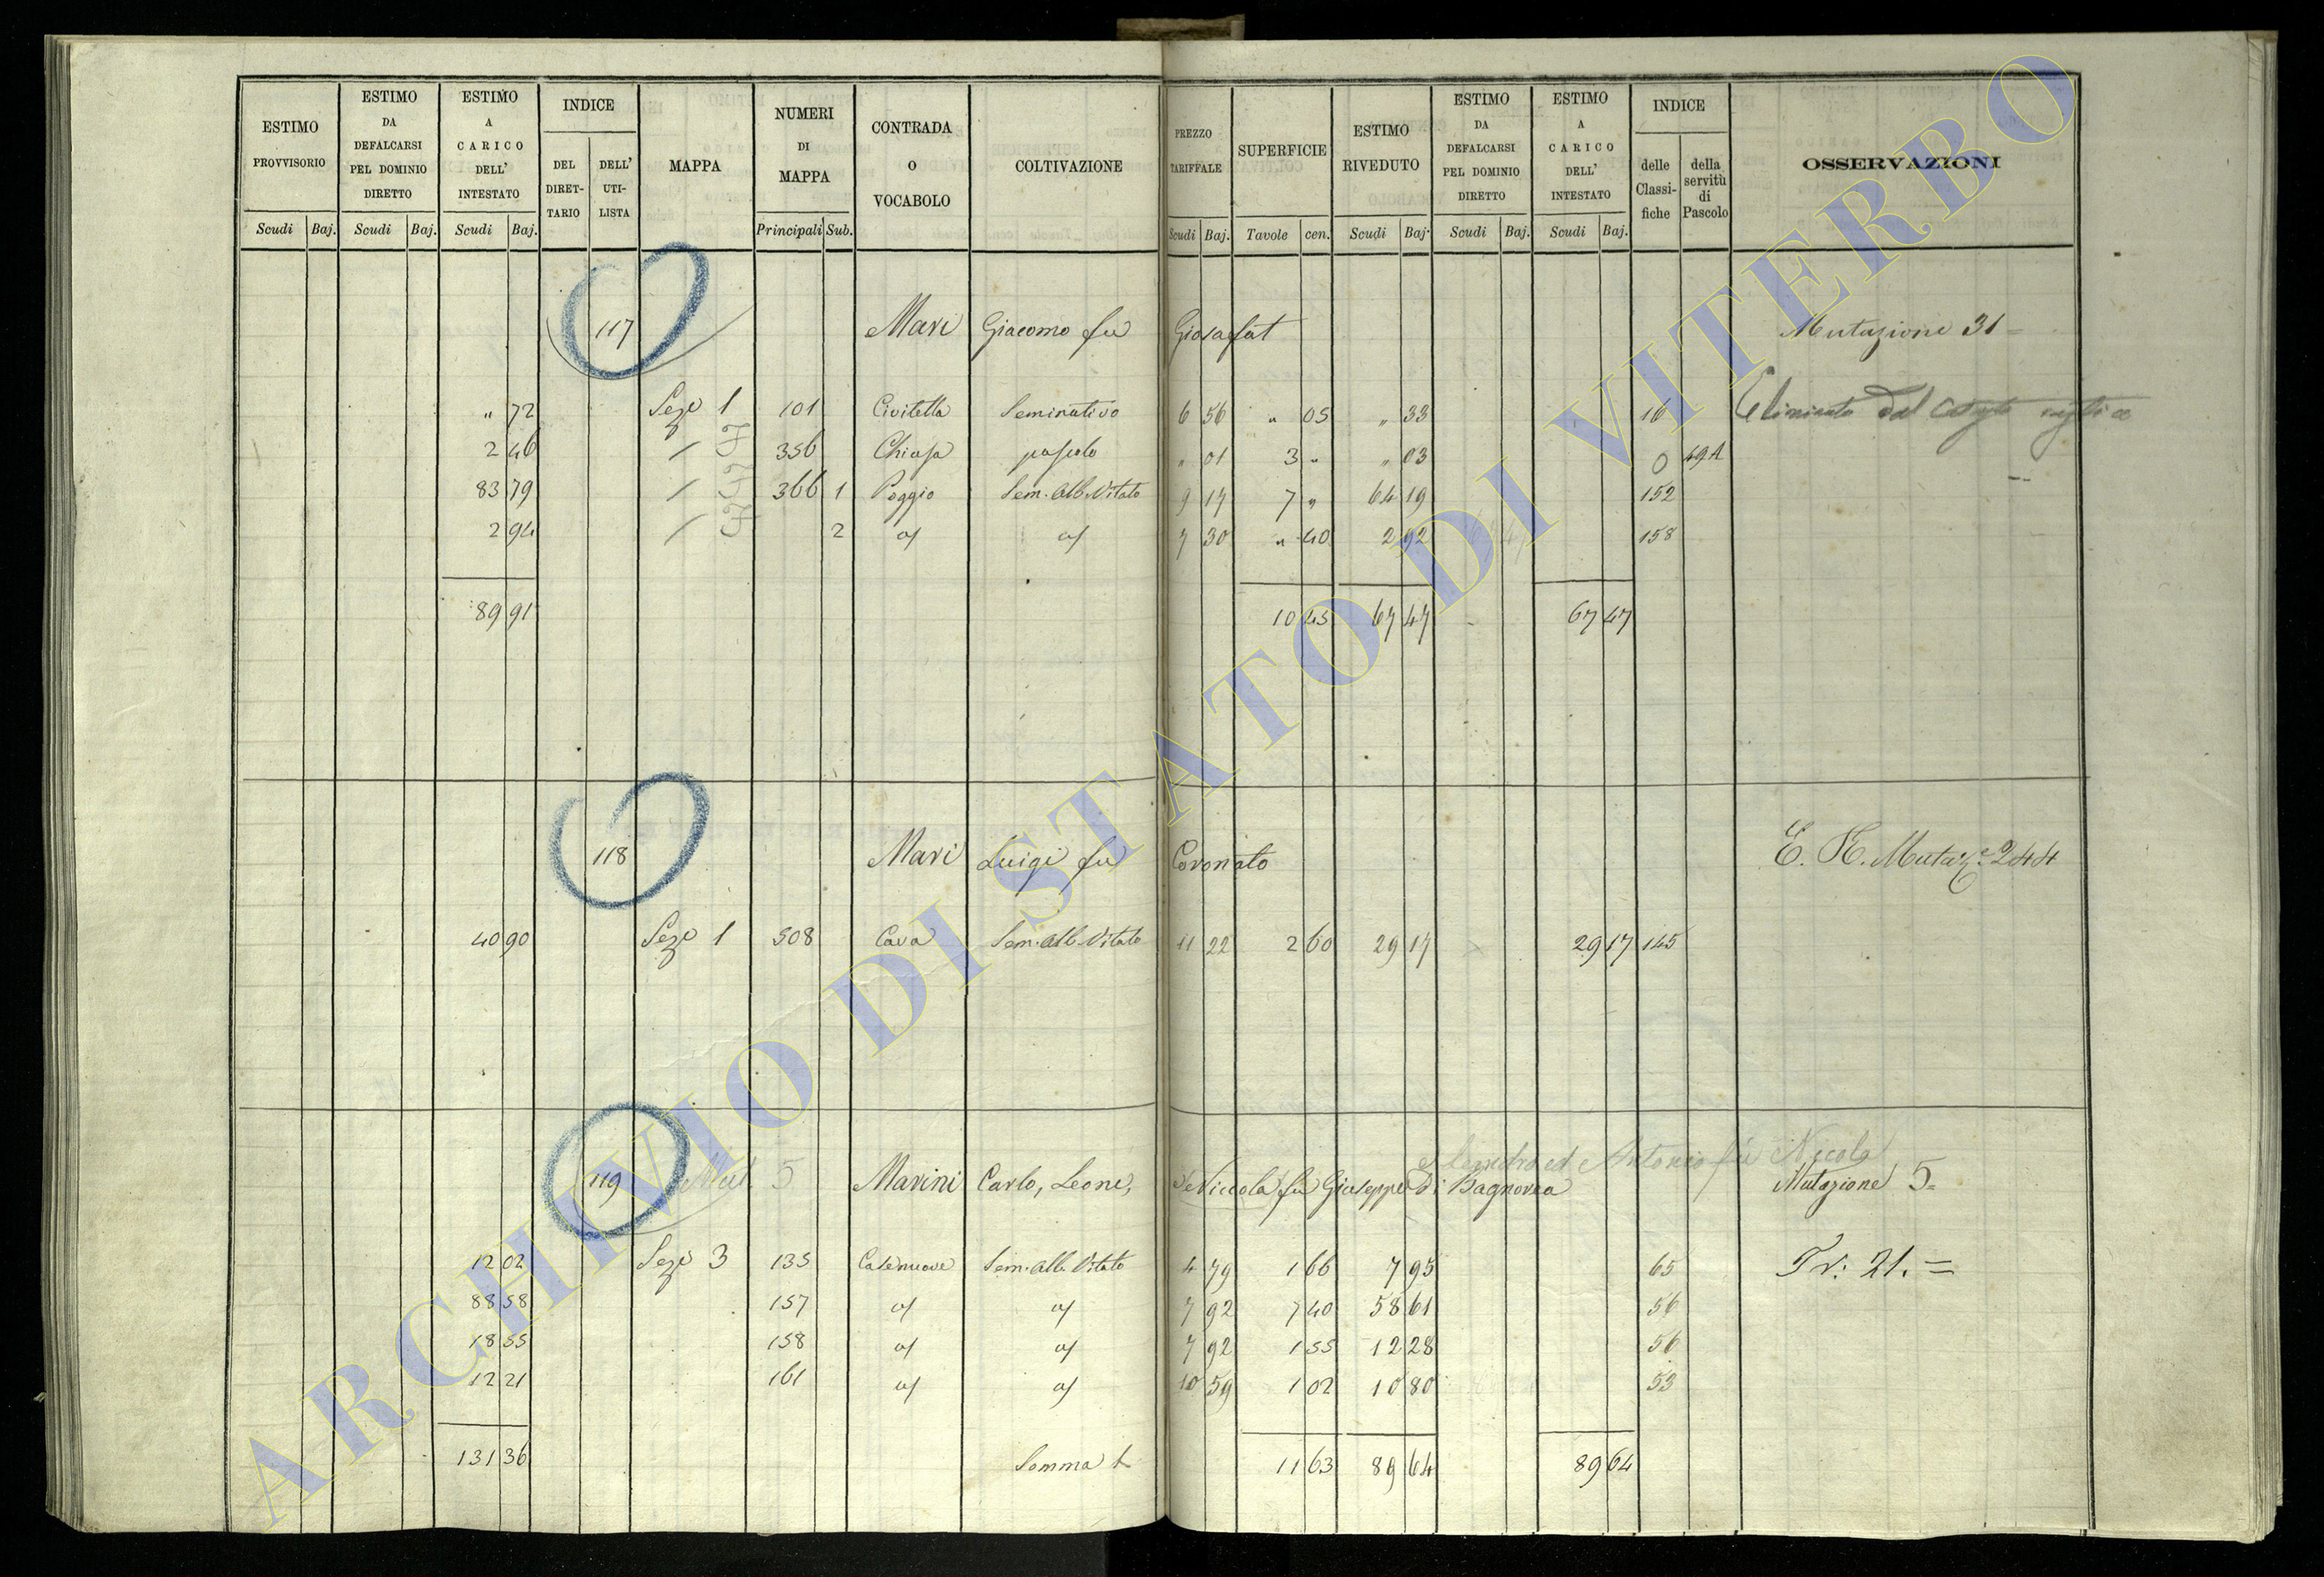 ESTIMO PROVVISORIO | ESTIMO DA DEFALCARSI PEL DOMINIO DIRETTO | ESTIMO A CARICO DELL' INTESTATO | INDICE DEL DIRET-TARIO | DELL' UTI-LISTA | MAPPA | NUMERI DI MAPPA | CONTRADA O VOCABOLO | COLTIVAZIONE | PREZZO TARIFFALE | SUPERFICIE | ESTIMO RIVEDUTO | ESTIMO DA DEFALCARSI PEL DOMINIO DIRETTO | ESTIMO A CARICO DELL' INTESTATO | INDICE delle Classi-fiche | della servitù di Pascolo | OSSERVAZIONI
Scudi Baj. Scudi Baj. Scudi Baj. Principali Sub. Scudi Baj. Tavole cen. Scudi Baj. Scudi Baj. Scudi Baj.
117 Mari Giacomo fu Giosafat Mutazione 31=
" 72 Sezе 1 101 Civitella Seminativo 6 56 " 05 " 33 16 Eliminato dal
2 46 / 356 Chiusa pascolo " 01 3 " " 03 0 49A
83 79 / 366 1 Poggio Sem. Alb. Vitato 9 17 7 " 64 19 152
2 94 / 2 a/ a/ 7 30 " 40 2 92 158
89 91 10 45 67 47 67 47
118 Mari Luigi fu Coronato E. K. Mutaze 244
40 90 Seze 1 508 Cava Sem. Alb. Vitato 11 22 2 60 29 17 29 17 145
ed Antonio fu Nicola
119 Mut. 5 Marini Carlo, Leone, e Niccola fu Giuseppe di Bagnorea Mutazione 5=
12 02 Seze 3 135 Casenuove Sem. Alb. Vitato 4 79 1 66 7 95 65 Tr: 21. =
88 58 157 a/ a/ 7 92 7 40 58 61 56
18 55 158 a/ a/ 7 92 1 55 12 28 56
12 21 161 a/ a/ 10 59 1 02 10 80 53
131 36 Somma 11 63 89 64 89 64
ARCHIVIO DI STATO DI VITERBO